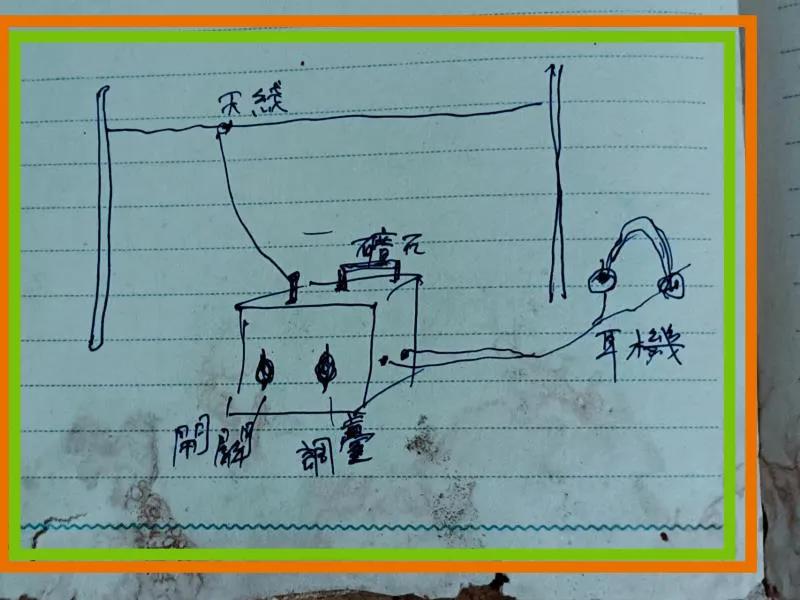 天線
礦石
耳機
開關
調臺